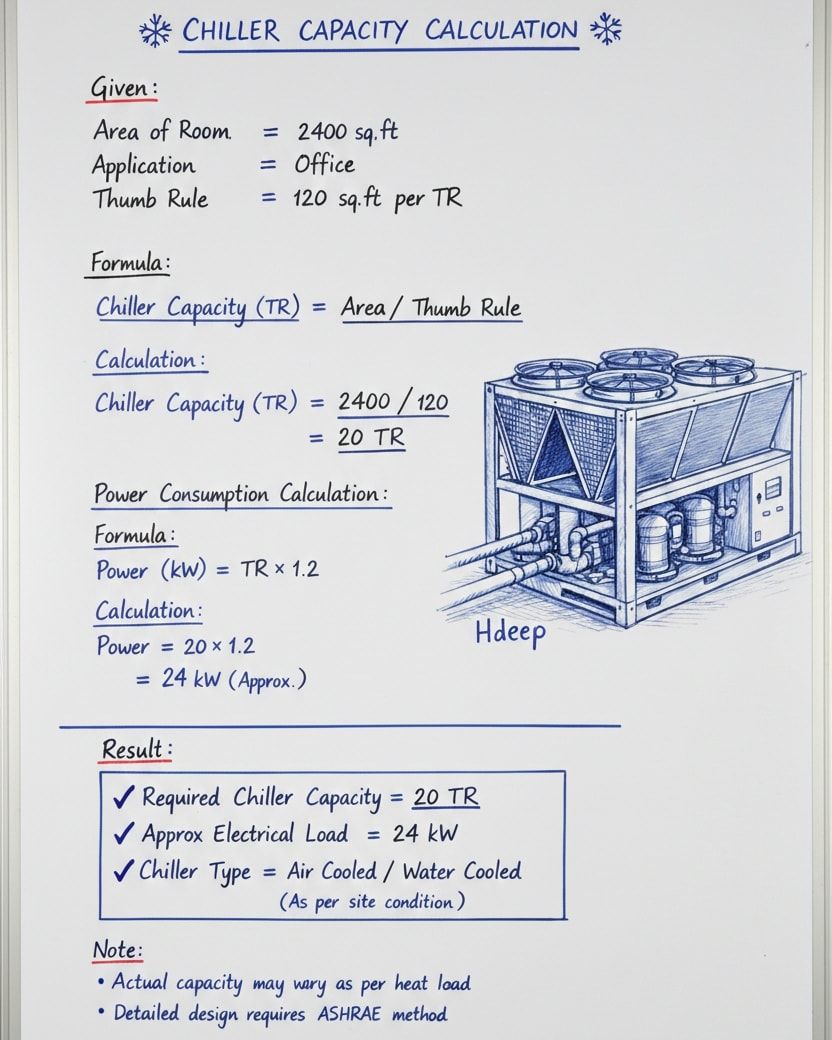 CHILLER CAPACITY CALCULATION
Given:
Area of Room = 2400 sq.ft
Application = Office
Thumb Rule = 120 sq.ft per TR
Formula:
Chiller Capacity (TR) = Area / Thumb Rule
Calculation:
Chiller Capacity (TR) = 2400 / 120
= 20 TR
Power Consumption Calculation:
Formula:
Power (kW) = TR × 1.2
Calculation:
Power = 20 × 1.2
= 24 kW (Approx.)
Hdeep
Result:
✓ Required Chiller Capacity = 20 TR
✓ Approx Electrical Load = 24 kW
✓ Chiller Type = Air Cooled / Water Cooled
(As per site condition)
Note:
• Actual capacity may vary as per heat load
• Detailed design requires ASHRAE method